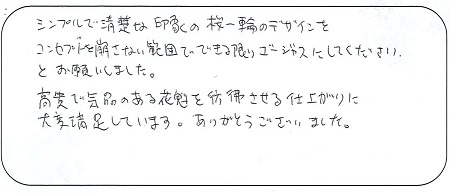 シンプルで清楚な印象の桜一輪のデザインを
コンセプトを崩さない範囲でできる限りゴージャスにしてください.
とお願いしました。
高貴で気品のある花魁を彷彿させる仕上がりに
大変満足しています。ありがとうございました。